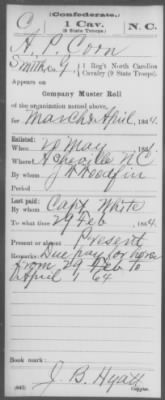 (Confederate.)
C 1 Cav. N. C.
(9 State Troops.)
H. P. Corn
Smith Co. G, 1 Reg't North Carolina
Cavalry (9 State Troops).
Appears on
Company Muster Roll
of the organization named above,
for March & April, 1864.
Enlisted:
When 20 May, 1861.
Where Asheville N.C.
By whom J. W. Woodfin
Period
Last paid:
By whom Capt. White
To what time 29 Feb, 1864.
Present or absent Present
Remarks: Due pay for horse
from 29 Feb to
April 1 64
Book mark:
J. B. Hyatt
(642) Copyist.